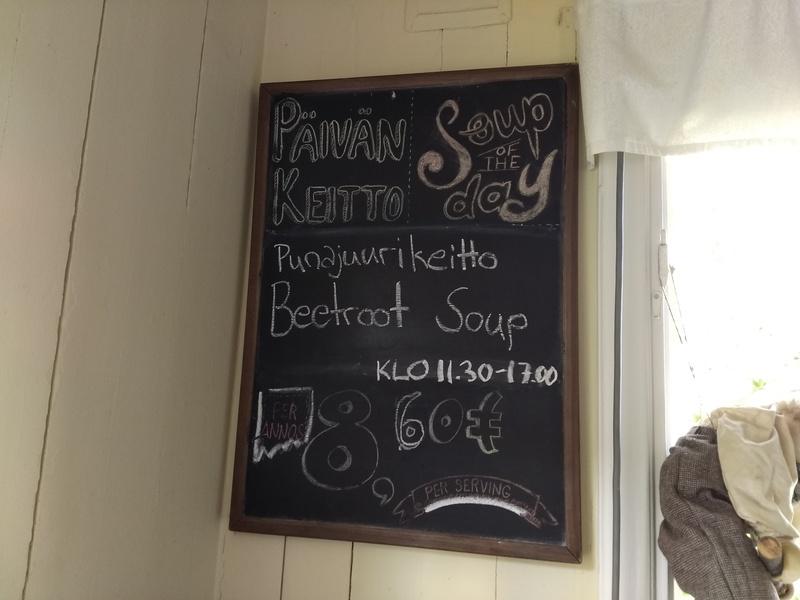 PÄIVÄN
KEITTO
Soup
OF
THE
day
Punajuurikeitto
Beetroot Soup
KLO 11.30-17.00
PER
ANNOS
8,60€
PER SERVING